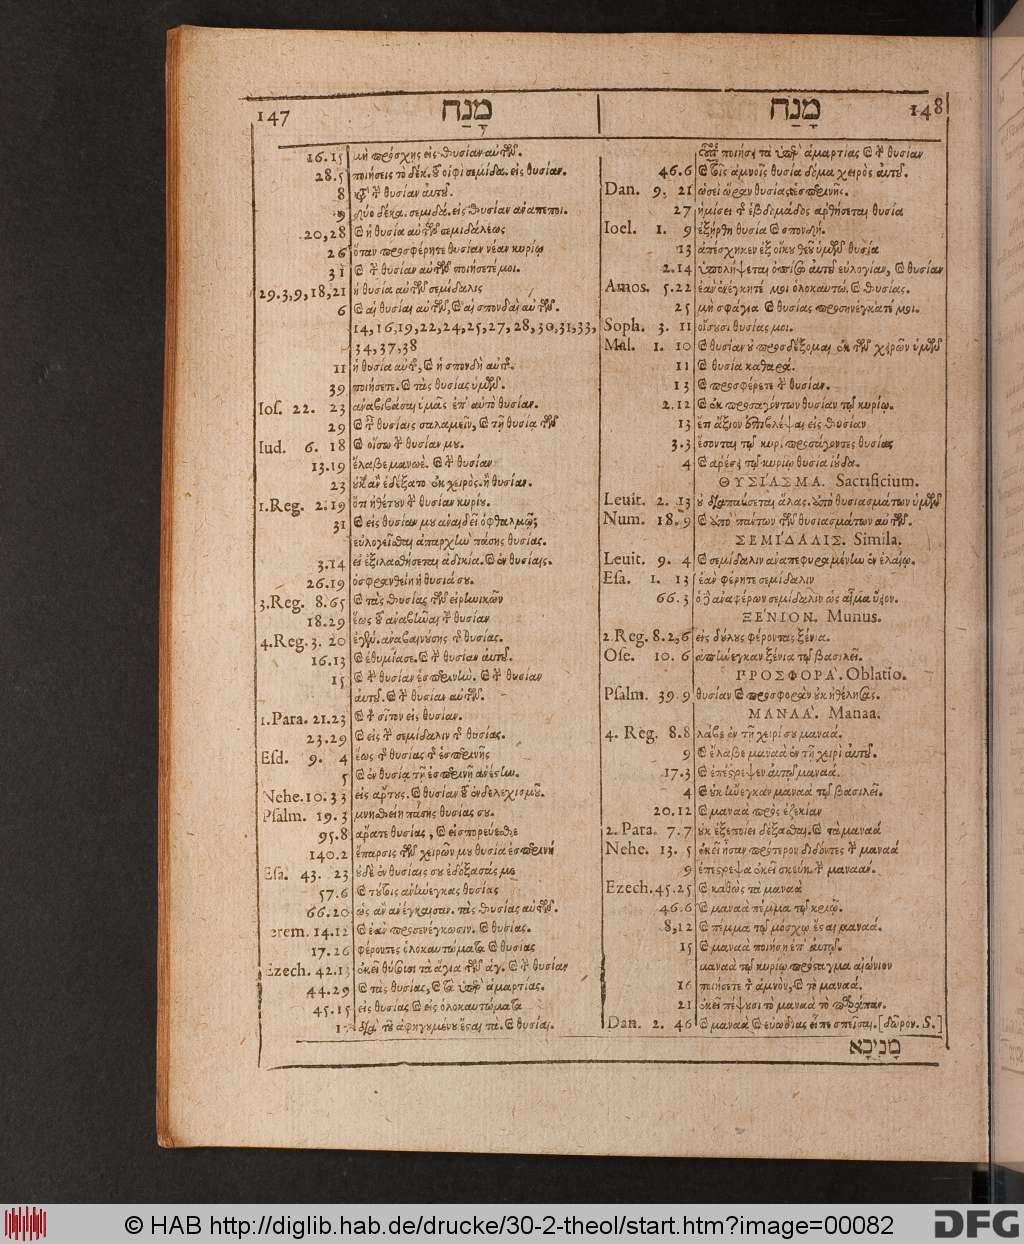 147 מָנַח
16.15 μὴ πρόσχης εἰς θυσίαν αὐτῶν.
28.5 ποιήσεις τὸ δέκ. τοῦ οἰφὶ σεμίδα. εἰς θυσίαν.
8 τὴν θυσίαν αὐτοῦ.
9 δύο δέκα. σεμιδά. εἰς θυσίαν ἀναπεποι.
20,28 καὶ ἡ θυσία αὐτῶν σεμιδάλεως
26 ὅταν προσφέρητε θυσίαν νέαν κυρίῳ
31 καὶ τὴν θυσίαν αὐτῶν ποιήσετέ μοι.
29.3,9,18,21 ἡ θυσία αὐτῶν σεμίδαλις
6 καὶ αἱ θυσίαι αὐτῶν, καὶ αἱ σπονδαὶ αὐτῶν.
14,16,19,22,24,25,27,28,30,31,33,
34,37,38
11 ἡ θυσία αὐτῆς, καὶ ἡ σπονδὴ αὐτῆς.
39 ποιήσετε. καὶ τὰς θυσίας ὑμῶν.
Ios. 22. 23 ἀναβιβάσαι ὑμᾶς ἐπ' αὐτὸ θυσίαν.
29 καὶ ταῖς θυσίαις σαλαμεῖν, καὶ τῇ θυσίᾳ τῶν
Iud. 6. 18 καὶ οἴσω τὴν θυσίαν μου.
13.19 ἔλαβε μανωὲ. καὶ τὴν θυσίαν
23 οὐκ ἂν ἐδέξατο ἐκ χειρὸς. ἢ θυσίαν.
1.Reg. 2.19 ὅτι ἠθέτουν τὴν θυσίαν κυρίου.
31 καὶ εἰς θυσίαν μου ἀναιδεῖ ὀφθαλμῷ;
εὐλογεῖσθαι ἀπαρχὴν πάσης θυσίας.
3.14 εἰ ἐξιλασθήσεται ἀδικία. καὶ ἐν θυσίαις.
26.19 ὀσφρανθείη ἡ θυσία σου.
3.Reg. 8.65 καὶ τὰς θυσίας τῶν εἰρηνικῶν
18.29 ἕως τοῦ ἀναβῆναι τὴν θυσίαν
4.Reg. 3. 20 ἐγένετο. ἀναβαινούσης τῆς θυσίας.
16.13 καὶ ἐθυμίασε. καὶ τὴν θυσίαν αὐτοῦ.
15 καὶ τὴν θυσίαν ἑσπερινὴν. καὶ τὴν θυσίαν
αὐτοῦ. καὶ τὴν θυσίαν αὐτῶν.
1.Para. 21.23 καὶ τὸν σῖτον εἰς θυσίαν.
23.29 καὶ εἰς τὴν σεμίδαλιν τῆς θυσίας.
Esd. 9. 4 ἕως τῆς θυσίας τῆς ἑσπερινῆς
5 καὶ ἐν θυσίᾳ τῇ ἑσπερινῇ ἀνέστην.
Nehe. 10. 33 εἰς ἄρτους. καὶ θυσίαν τοῦ ἐνδελεχισμοῦ.
Psalm. 19. 3 μνησθείη πάσης θυσίας σου.
95.8 ἄρατε θυσίας, καὶ εἰσπορεύεσθε
140.2 ἔπαρσις τῶν χειρῶν μου θυσία ἑσπερινή
Esa. 43. 23 οὐδὲ ἐν θυσίαις σου ἐδόξασάς με
57.6 καὶ τούτοις ἀνήνεγκας θυσίας
66.20 ὡς ἂν ἀνέγκαισαν. τὰς θυσίας αὐτῶν.
erem. 14.12 καὶ ἐὰν προσενέγκωσιν. καὶ θυσίας.
17.26 φέροντες ὁλοκαυτώματα καὶ θυσίας
Ezech. 42.13 ἐκεῖ θήσουσι τὰ ἅγια τῶν ἁγ. καὶ τὴν θυσίαν
44.29 καὶ τὰς θυσίας, καὶ τὰ ὑπὲρ ἁμαρτίας.
45.15 εἰς θυσίας καὶ εἰς ὁλοκαυτώματα
17 διὰ τοῦ ἀφηγουμένου ἔσται τὰ. καὶ θυσίαι.
מָנַח 148
οὗτος ποιήσει τὰ ὑπὲρ ἁμαρτίας καὶ τὴν θυσίαν
46.6 καὶ τοῖς ἀμνοῖς θυσία δόμα χειρὸς αὐτοῦ.
Dan. 9. 21 ὡσεὶ ὥραν θυσίας ἑσπερινῆς.
27 ἡμίσει τῆς ἑβδομάδος ἀρθήσεται θυσία
Ioel. 1. 9 ἐξήρθη θυσία καὶ σπονδή.
13 ἀπέσχηκεν ἐξ οἴκου θεοῦ ὑμῶν θυσία
2.14 ὑπολήψεται ὀπίσω αὐτοῦ εὐλογίαν, καὶ θυσίαν
Amos. 5.22 ἐὰν ἐνέγκητέ μοι ὁλοκαυτώ. καὶ θυσίας.
25 μὴ σφάγια καὶ θυσίας προσηνέγκατέ μοι.
Soph. 3. 11 οἴσουσι θυσίας μοι.
Mal. 1. 10 καὶ θυσίαν οὐ προσδέξομαι ἐκ τῶν χειρῶν ὑμῶν
11 καὶ θυσία καθαρά.
13 καὶ προσφέρετε τὴν θυσίαν.
2.12 καὶ ἐκ προσαγόντων θυσίαν τῷ κυρίῳ.
13 ἔτι ἄξιον ἐπιβλέψαι εἰς θυσίαν
3.3 ἔσονται τῷ κυρί προσάγοντες θυσίας
4 καὶ ἀρέσει τῷ κυρίῳ θυσία ἰούδα.
ΘΥΣΙΑΣΜΑ. Sacrificium.
Leuit. 2. 13 οὐ διαπαύσεται ἅλας. ὑπὸ θυσιασμάτων ὑμῶν
Num. 18. 9 καὶ ὑπὸ πάντων τῶν θυσιασμάτων αὐτῶν.
ΣΕΜΙΔΑΛΙΣ. Simila.
Leuit. 9. 4 καὶ σεμίδαλιν ἀναπεφυραμένην ἐν ἐλαίῳ.
Esa. 1. 13 ἐὰν φέρητε σεμίδαλιν
66.3 ὁ δὲ ἀναφέρων σεμίδαλιν ὡς αἷμα ὕειον.
ΞΕΝΙΟΝ. Munus.
2.Reg. 8.2,6 εἰς δούλους φέροντας ξένια.
Ose. 10. 6 ἀπήνεγκαν ξένια τῷ βασιλεῖ.
ΠΡΟΣΦΟΡΑ. Oblatio.
Psalm. 39. 9 θυσίαν καὶ προσφορὰν οὐκ ἠθέλησας.
ΜΑΝΑΑ. Manaa.
4. Reg. 8.8 λάβε ἐν τῇ χειρί σου μαναά.
9 καὶ ἔλαβε μαναὰ ἐν τῇ χειρὶ αὐτοῦ.
17.3 καὶ ἐπέστρεψεν αὐτῷ μαναά.
4 καὶ οὐκ ἤνεγκαν μαναὰ τῷ βασιλεῖ.
20.12 καὶ μαναὰ πρὸς ἐζεκίαν
2. Para. 7.7 οὐκ ἐξεποίει δέξασθαι. καὶ τὰ μαναά
Nehe. 13. 5 ἐκεῖ ἦσαν πρότερον διδόντες τὴν μαναά
9 ἐπέστρεψα ἐκεῖ σκεύη. τὴν μαναάν.
Ezech. 45.25 καὶ καθὼς τὰ μαναὰ
46.6 καὶ μαναὰ πέμμα τῷ κριῷ.
8,12 καὶ πέμμα τῷ μόσχῳ ἔσται μαναά.
15 καὶ μαναὰ ποιήσῃ ἐπ' αὐτῷ.
μαναὰ τῷ κυρίῳ πρόσταγμα αἰώνιον
16 ποιήσετε τὸν ἀμνὸν, καὶ τὸ μαναά.
21 ἐκεῖ πέψουσι τὸ μαναὰ τὸ παράπαν.
Dan. 2. 46 καὶ μαναὰ καὶ εὐωδίας εἶπε σπεῖσαι. [δῶρον. S.]
מָנִיכָא
© HAB http://diglib.hab.de/drucke/30-2-theol/start.htm?image=00082
DFG